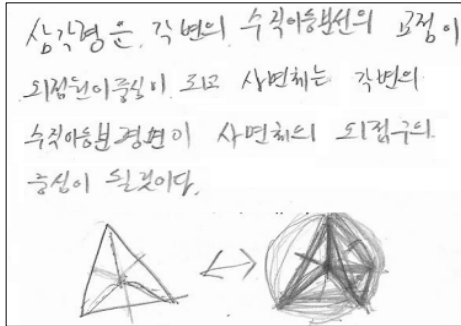 삼각형은 각변의 수직이등분선의 교점이
외접원의 중심이 되고 사면체는 각변의
수직이등분평면이 사면체의 외접구의
중심이 될것이다.